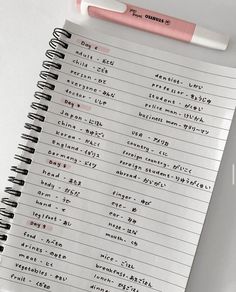 STABILO
Day 1
adult - おとな
child - こども
person - ひと
everyone - みんな
dentist - しかい
professor - きょうじゅ
student - がくせい
police man - けいかん
business man - サラリーマン
Day 2
Japan - にほん
China - ちゅうごく
Korea - かんこく
England - イギリス
Germany - ドイツ
USA - アメリカ
country - くに
foreign country - がいこく
foreign student - りゅうがくせい
Day 3
head - あたま
body - からだ
arm - うで
hand - て
leg/foot - あし
finger - ゆび
eye - め
ear - みみ
nose - はな
mouth - くち
food - たべもの
drinks - のみもの
meat - にく
vegetables - やさい
fruit - くだもの
rice - ごはん
breakfast - あさごはん
lunch - ひるごはん
dinner - ばんごはん